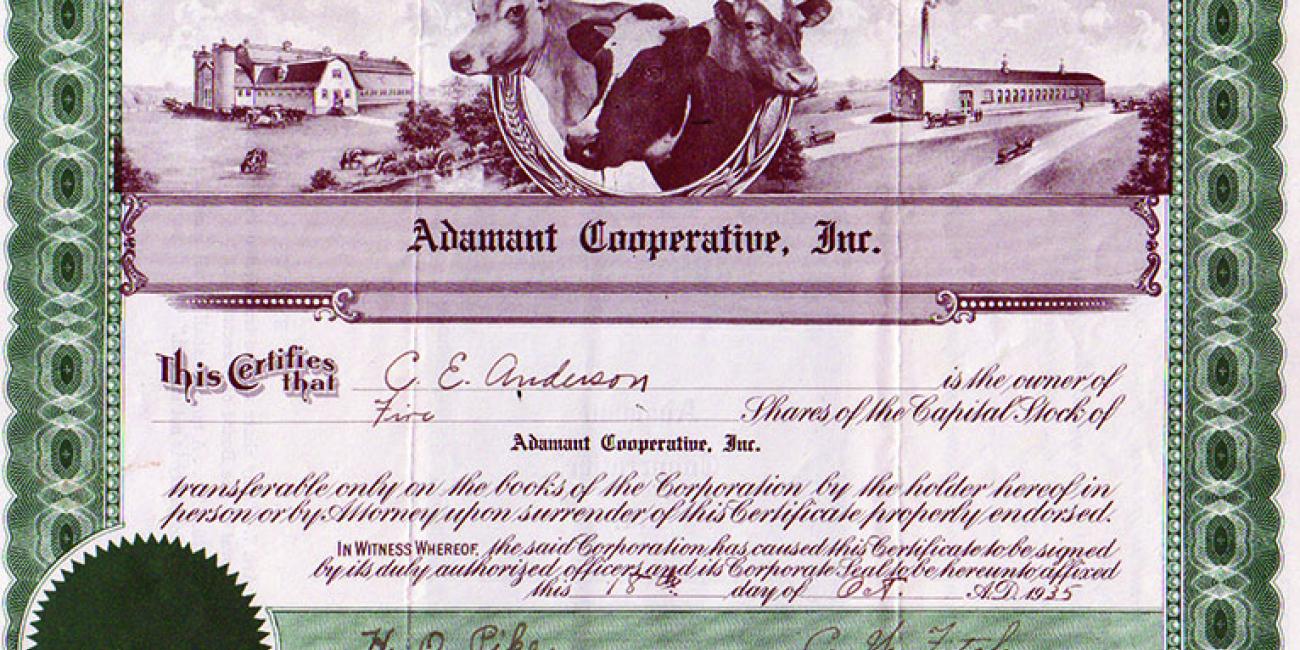 Adamant Cooperative, Inc.
This Certifies that C. E. Anderson is the owner of
Five Shares of the Capital Stock of
Adamant Cooperative, Inc.
transferable only on the books of the Corporation by the holder hereof in
person or by Attorney upon surrender of this Certificate properly endorsed.
IN WITNESS WHEREOF, the said Corporation has caused this Certificate to be signed
by its duly authorized officers and its Corporate Seal to be hereunto affixed
this day of Oct. A.D. 1935
H. O. Pike